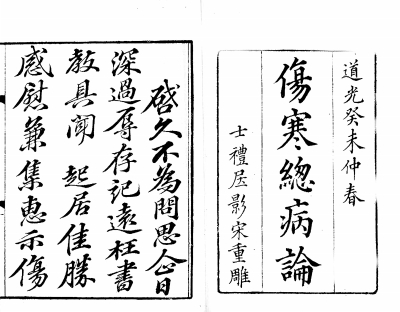 道光癸未仲春
傷寒總病論
士禮居影宋重雕
啓久不為問思企日
深過辱存記遠枉書
教具聞 起居佳勝
感慰兼集惠示傷